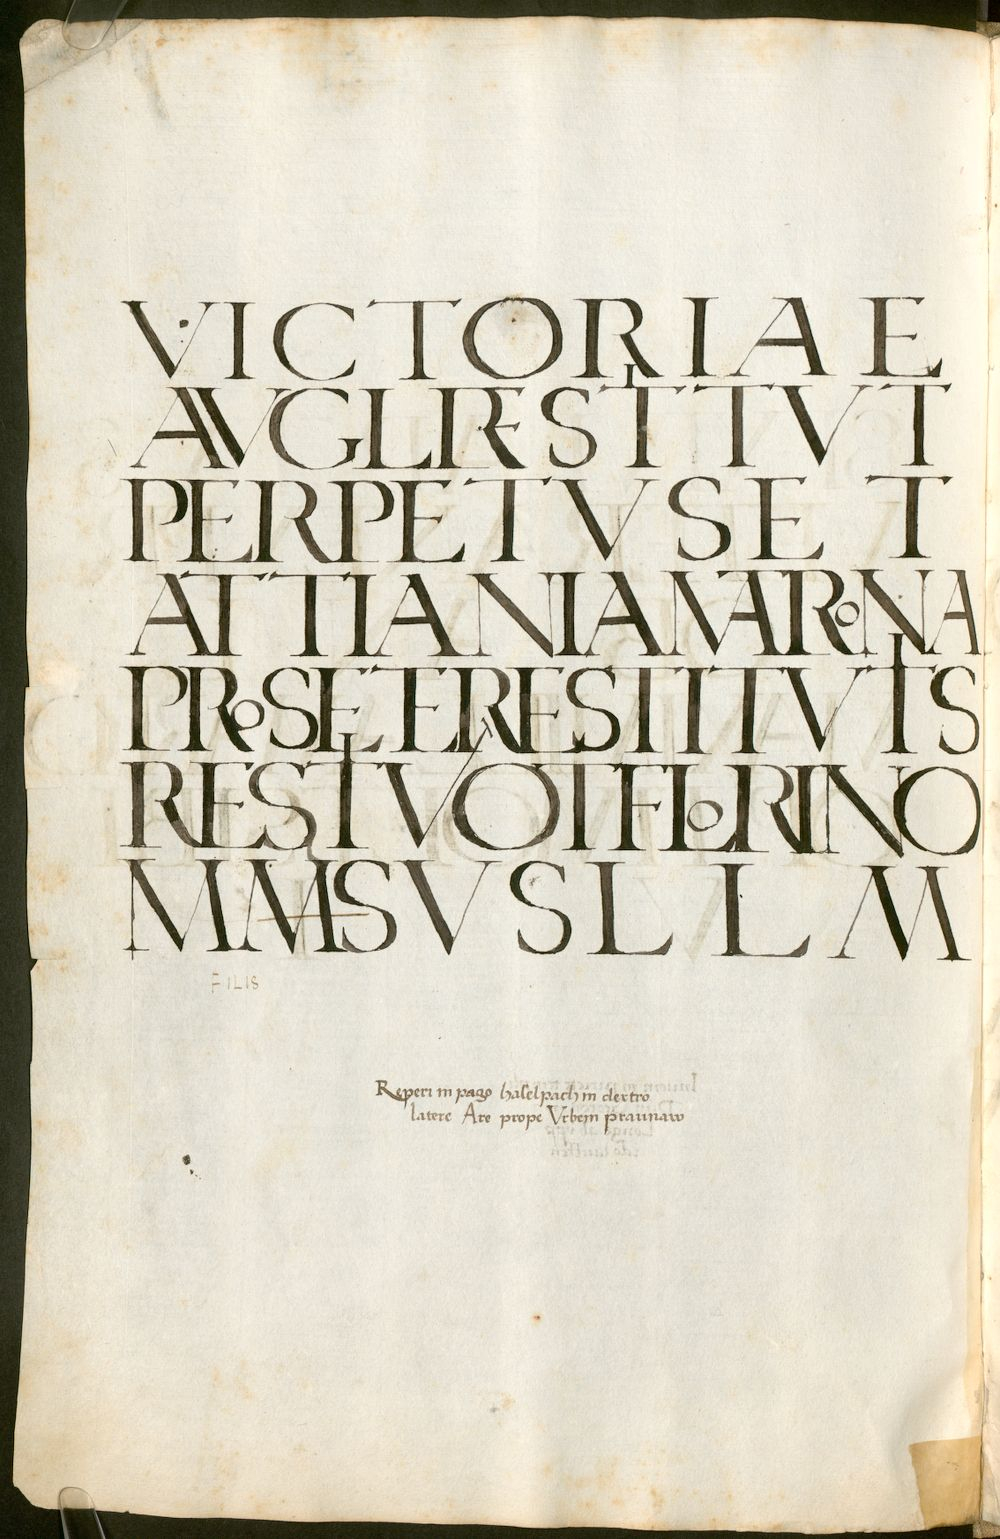 VICTORIAE
AVGLRESTITVT
PERPETVSET
ATTIANIAMARONA
PROSEETERESTITVTS
RESTVOTFLORINO
MMSVSLLM
FILIS
Reperi in pago haselpach in dextro
latere Are prope Vrbem praunaw